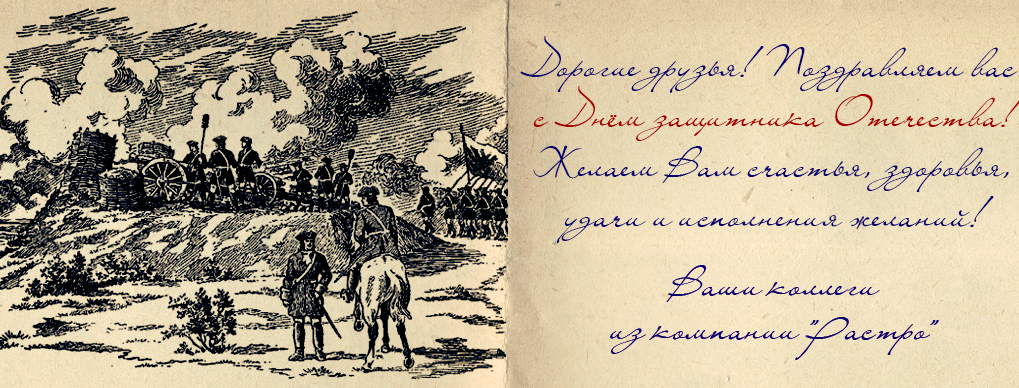 Дорогие друзья! Поздравляем вас
с Днём защитника Отечества!
Желаем Вам счастья, здоровья,
удачи и исполнения желаний!
Ваши коллеги
из компании "Растро"